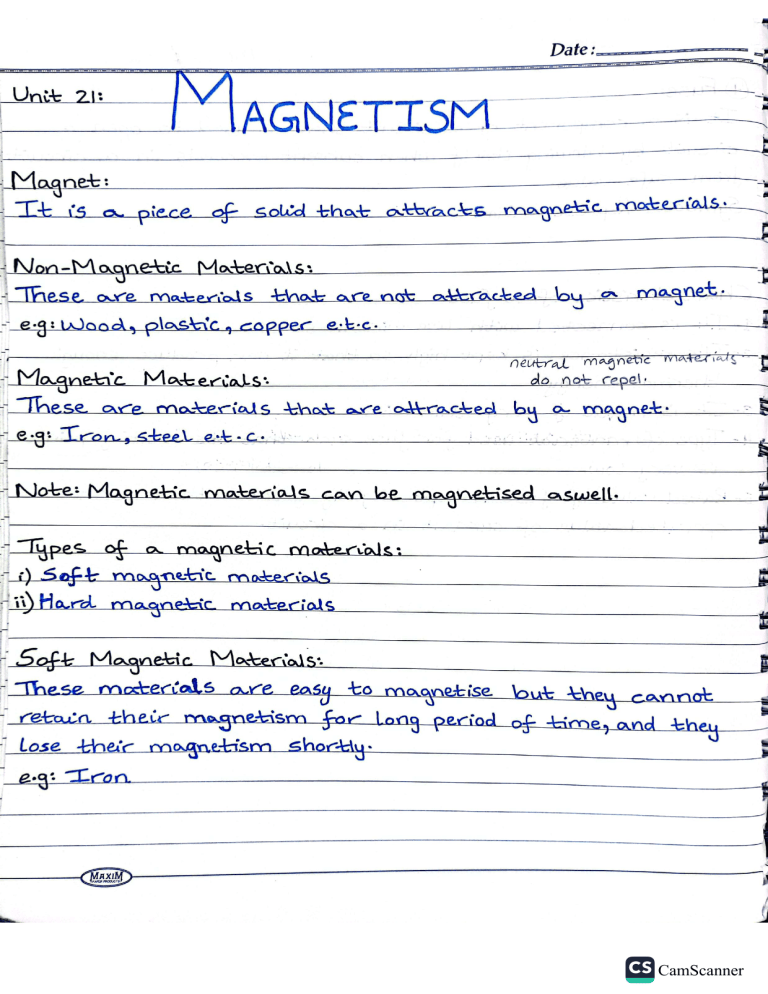 Date:
Unit 21: MAGNETISM
Magnet:
It is a piece of solid that attracts magnetic materials.
Non-Magnetic Materials:
These are materials that are not attracted by a magnet.
e.g: Wood, plastic, copper e.t.c.
neutral magnetic materials
do not repel.
Magnetic Materials:
These are materials that are attracted by a magnet.
e.g: Iron, steel e.t.c.
Note: Magnetic materials can be magnetised aswell.
Types of a magnetic materials:
i) Soft magnetic materials
ii) Hard magnetic materials
Soft Magnetic Materials:
These materials are easy to magnetise but they cannot
retain their magnetism for long period of time, and they
lose their magnetism shortly.
e.g: Iron
MAXIM
CS CamScanner